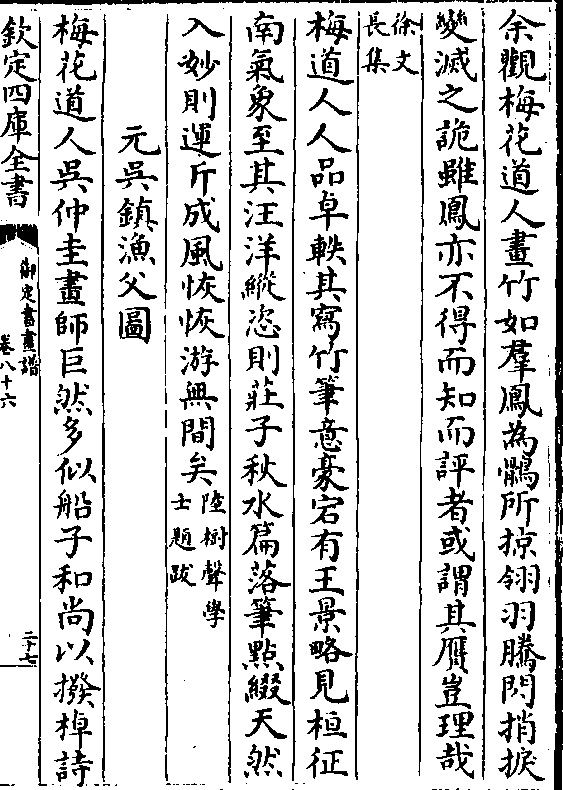 余觀梅花道人畫竹如羣鳳為鶻所掠翎羽騰閃捎捩
變滅之詭雖鳳亦不得而知而評者或謂其贋豈理哉
徐文
長集
梅道人人品卓軼其寫竹筆意豪宕有王景略見桓征
南氣象至其汪洋縱恣則莊子秋水篇落筆點綴天然
入妙則運斤成風恢恢游無間矣
陸樹聲學
士題跋
元吳鎮漁父圖
梅花道人吳仲圭畫師巨然多似船子和尚以撥棹詩
欽定四庫全書
御定書畫譜
卷八十六
二十七